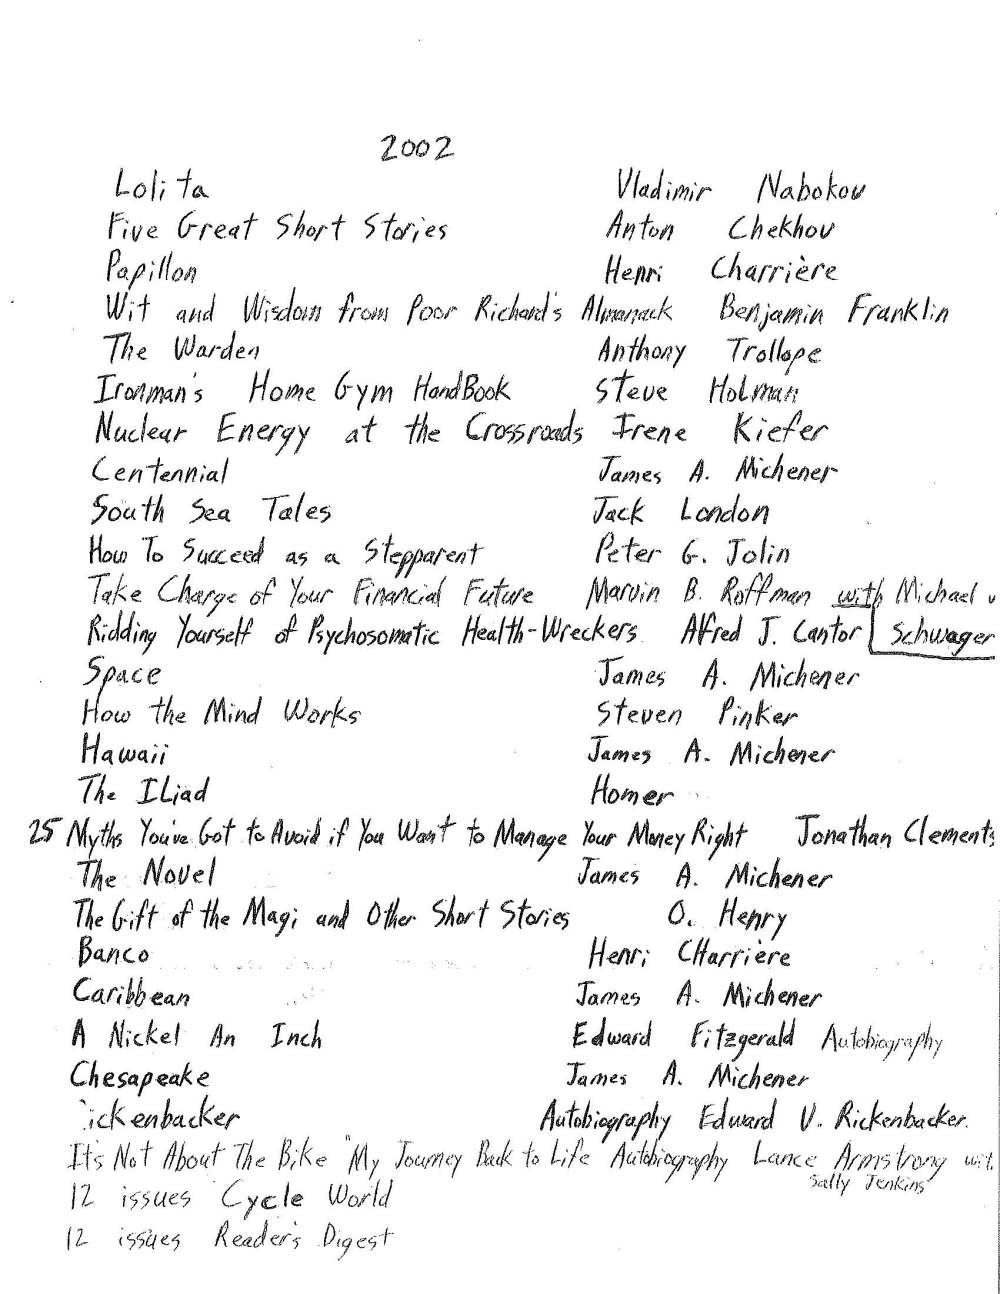 2002
Lolita Vladimir Nabokov
Five Great Short Stories Anton Chekhov
Papillon Henri Charrière
Wit and Wisdom from Poor Richard's Almanack Benjamin Franklin
The Warden Anthony Trollope
Ironman's Home Gym HandBook Steve Holman
Nuclear Energy at the Crossroads Irene Kiefer
Centennial James A. Michener
South Sea Tales Jack London
How To Succeed as a Stepparent Peter G. Jolin
Take Charge of Your Financial Future Marvin B. Roffman with Michael
Ridding Yourself of Psychosomatic Health-Wreckers Alfred J. Cantor Schwager
Space James A. Michener
How the Mind Works Steven Pinker
Hawaii James A. Michener
The ILiad Homer
25 Myths You've Got to Avoid if You Want to Manage Your Money Right Jonathan Clements
The Novel James A. Michener
The Gift of the Magi and Other Short Stories O. Henry
Banco Henri CHarrière
Caribbean James A. Michener
A Nickel An Inch Edward Fitzgerald Autobiography
Chesapeake James A. Michener
ickenbacker Autobiography Edward V. Rickenbacker.
It's Not About The Bike "My Journey Back to Life Autobiography Lance Armstrong wit
Sally Jenkins
12 issues Cycle World
12 issues Reader's Digest